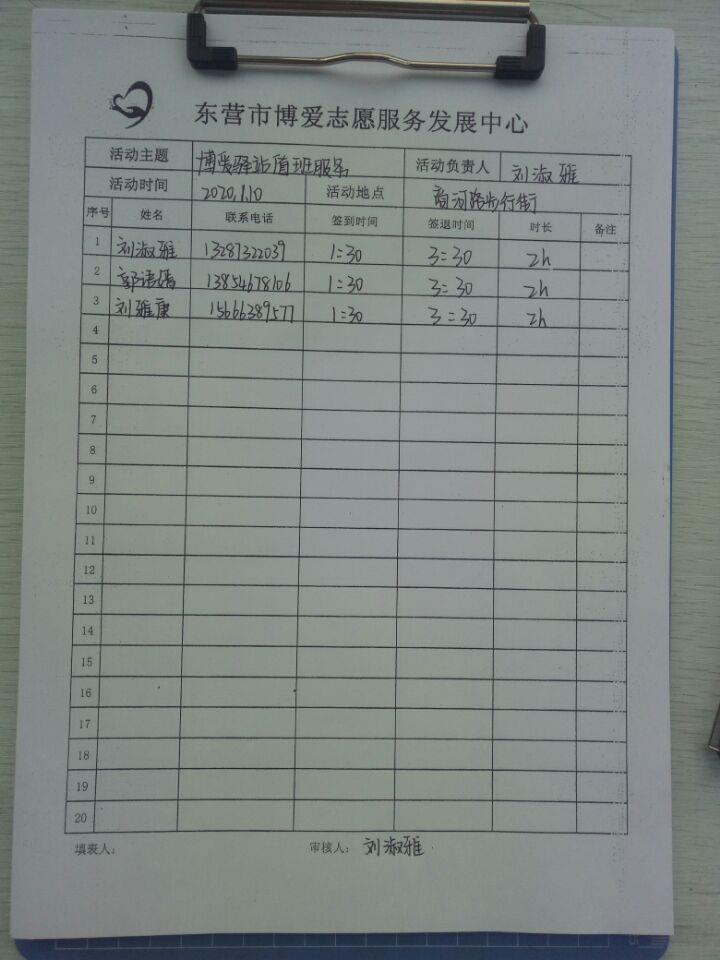 东营市博爱志愿服务发展中心
活动主题 博爱驿站值班服务 活动负责人 刘淑雅
活动时间 2020.1.10 活动地点 商河路步行街
序号 姓名 联系电话 签到时间 签退时间 时长 备注
1 刘淑雅 13287322039 1:30 3:30 2h
2 郭 13854678106 1:30 3:30 2h
3 刘雅康 15666389577 1:30 3:30 2h
4
5
6
7
8
9
10
11
12
13
14
15
16
17
18
19
20
填表人: 审核人: 刘淑雅